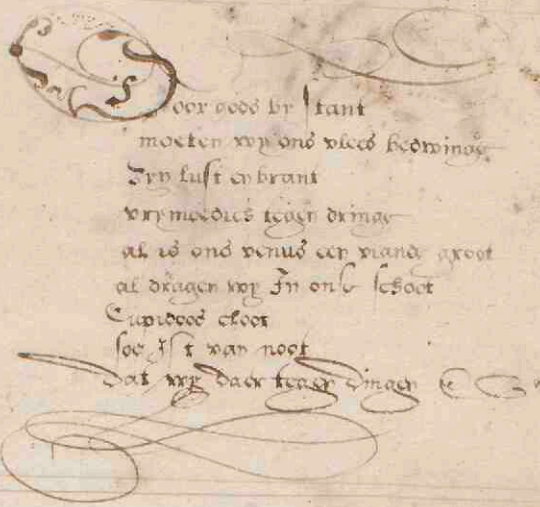 Door gods by stant
moeten wy ons vlees bedwinge
Zyn lust en brant
vrymoedich tegen dringe
al is ons venus een viand groot
al dragen wy In ons schoot
Cupidoos cloot
soe Ist van noot
Dat wy daer tegen dingen